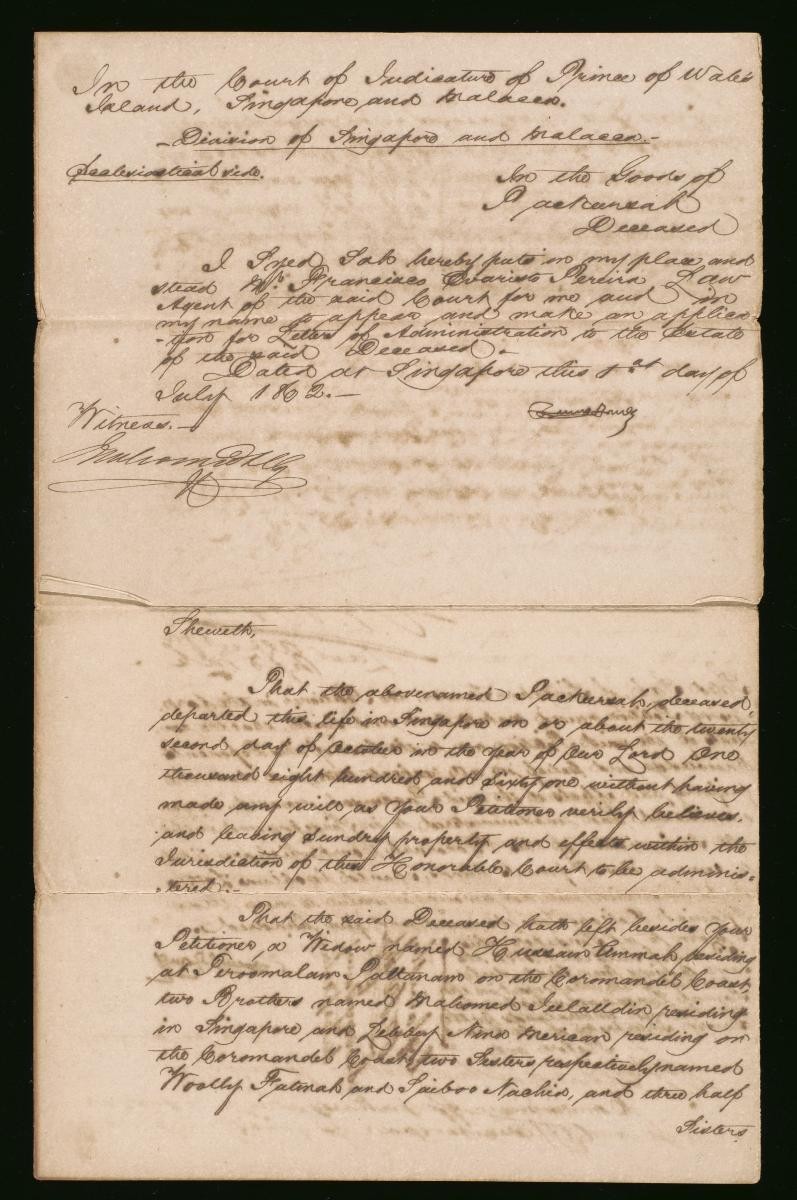 In the Court of Judicature of Prince of Wales
Island, Singapore and Malacca.
- Division of Singapore and Malacca. -
Ecclesiastical side.
In the Goods of
Packursah
Deceased
I Syed Sah hereby put in my place and
stead Mr. Francisco Evaristo Pereira Law
Agent of the said Court for me and in
my name to appear and make an applica
-tion for Letters of Administration to the Estate
of the said Deceased. -
Dated at Singapore this 1st day of
July 1862. -
Witness. -
Sheweth,
That the abovenamed Packursah, deceased,
departed this life in Singapore on or about the twenty
second day of October in the year of Our Lord One
thousand eight hundred and sixty one without having
made any will as Your Petitioner verily believes.
and leaving sundry property and effects within the
Jurisdiction of this Honorable Court to be adminis-
-tered. -
That the said Deceased hath left besides Your
Petitioner, a Widow named Hussain Ummah residing
at Peroomalam Pattanam on the Coromandel Coast,
two Brothers named Mahomed Jelalldin residing
in Singapore and Lebbay Nina Merican residing on
the Coromandel Coast, two Sisters respectively named
Woolly Fatimah and Saiboo Nachia, and three half
Sisters